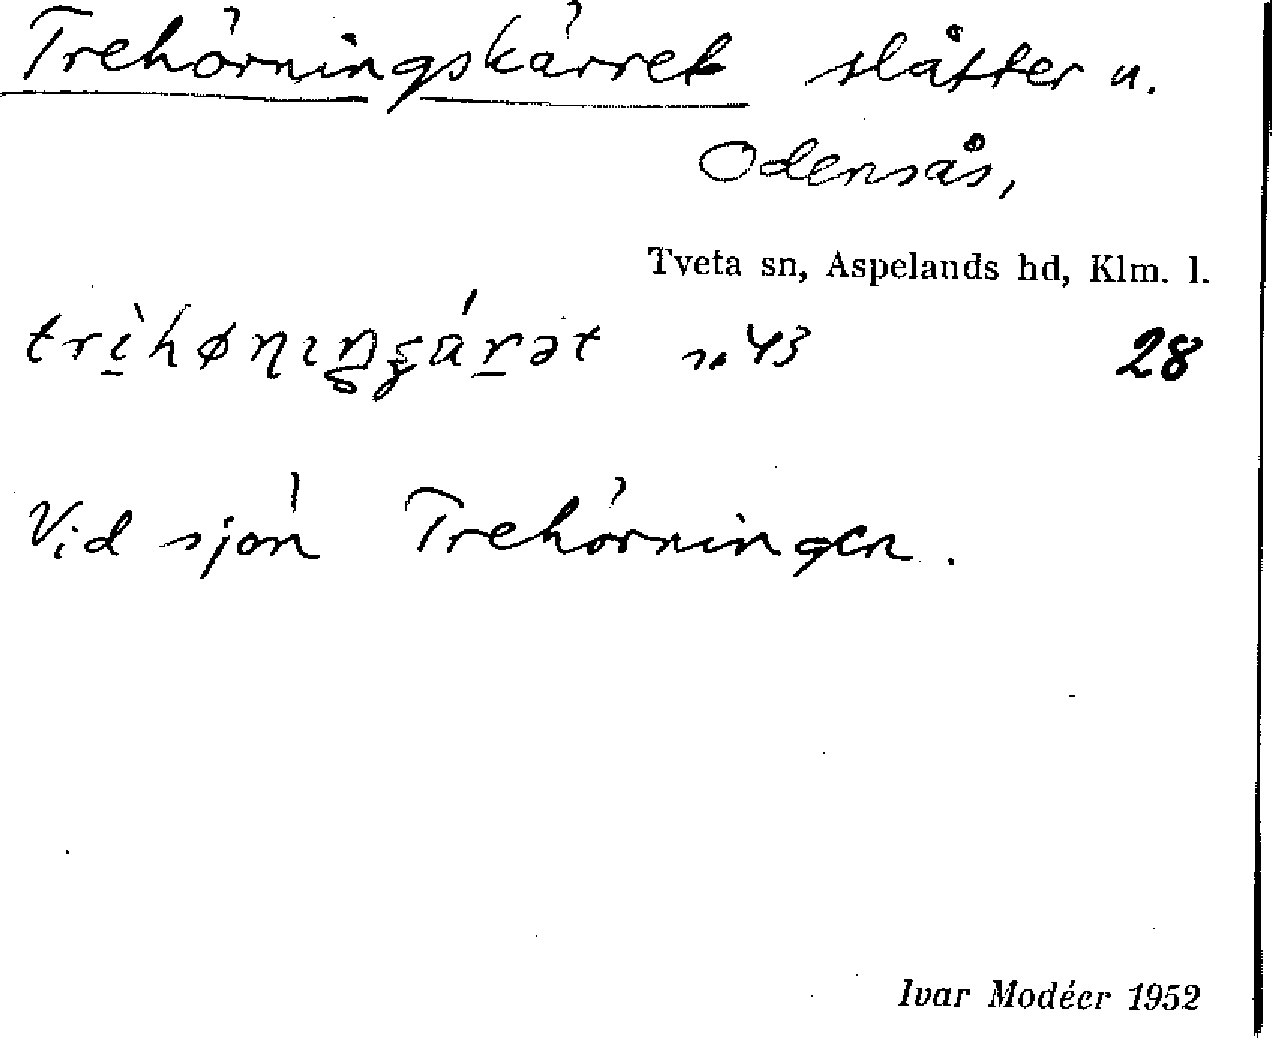 Trehörningskärret slåtter u.
Odensås,
Tveta sn, Aspelands hd, Klm. l.
n. 43 28
Vid sjön Trehörningen.
Ivar Modéer 1952